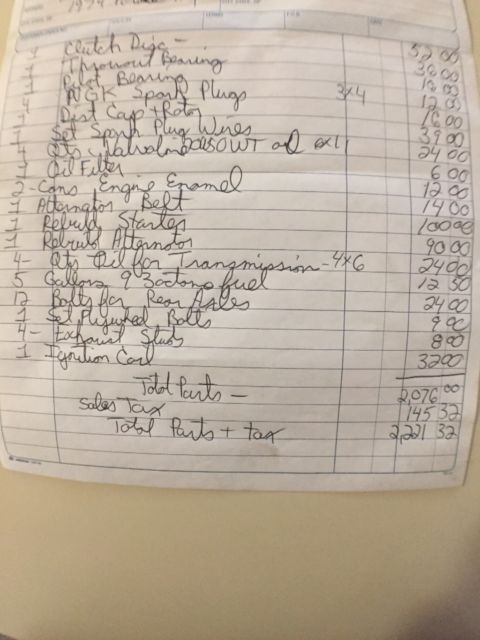 1 Clutch Disc - 52 00
1 Throwout Bearing 38 00
1 Pilot Bearing 18 00
4 NGK Spark Plugs 3x4 12 00
1 Dist Cap + Rotor 16 00
1 Set Spark Plug Wires 39 00
4 Qts Valvoline 20W50WT oil 6x4 24 00
1 Oil Filter 6 00
2- Cans Engine Enamel 12 00
1 Alternator Belt 14 00
1 Rebuilt Starter 100 00
1 Rebuilt Alternator 90 00
4- Qts Oil for Transmission - 4x6 24 00
5 Gallons 93 octane fuel 12 50
12 Bolts for Rear Axles 24 00
1 Set Flywheel Bolts 9 00
4- Exhaust Studs 8 00
1 Ignition Coil 32 00
Total Parts - 2,076 00
Sales Tax 145 32
Total Parts + tax 2,221 32